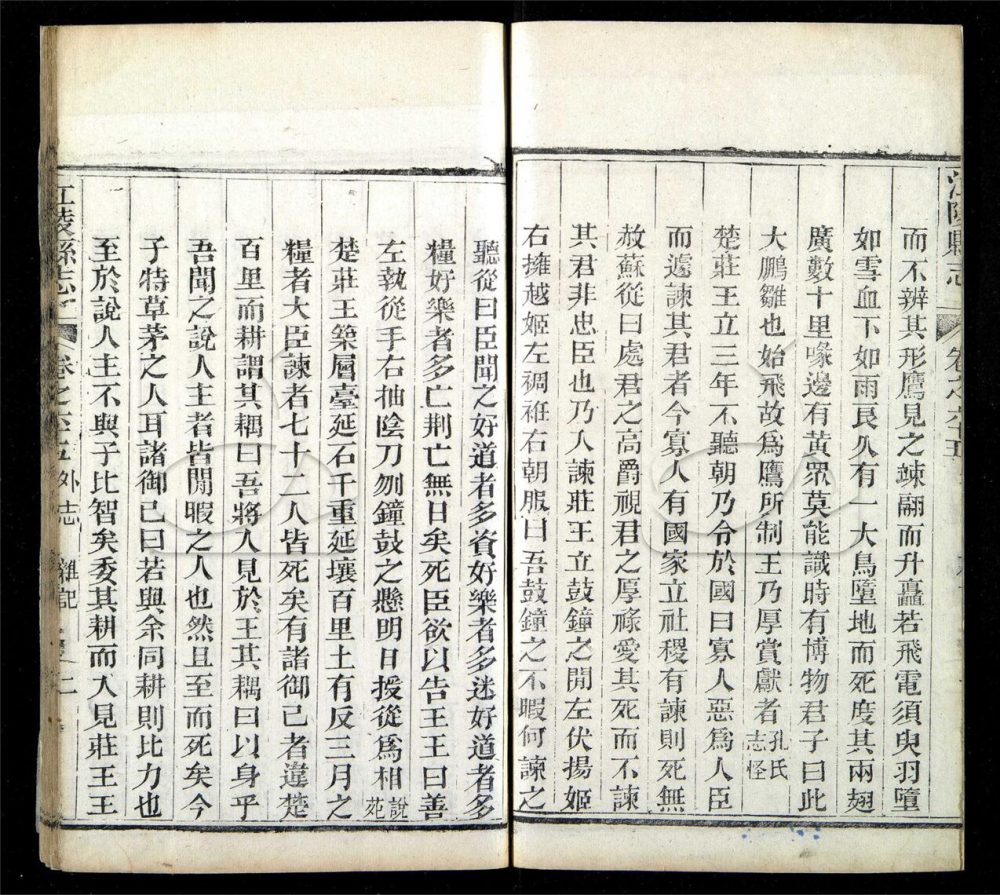 江陵縣志 卷之六十五
而不辨其形鷹見之竦翮而升矗若飛電須臾羽墮
如雪血下如雨良久有一大鳥墮地而死度其兩翅
廣數十里喙邊有黃眾莫能識時有博物君子曰此
大鵬雛也始飛故為鷹所制王乃厚賞獻者孔氏志怪
楚莊王立三年不聽朝乃令於國曰寡人惡為人臣
而遽諫其君者今寡人有國家立社稷有諫則死無
赦蘇從曰處君之高爵視君之厚祿愛其死而不諫
其君非忠臣也乃入諫莊王立鼓鐘之閒左伏揚姬
右擁越姬左裯袵右朝服曰吾鼓鐘之不暇何諫之
聽從曰臣聞之好道者多資好樂者多迷好道者多
糧好樂者多亡荆亡無日矣死臣欲以告王王曰善
左執從手右抽陰刀刎鐘鼓之懸明日授從為相說苑
楚莊王築層臺延石千重延壤百里土有反三月之
糧者大臣諫者七十二人皆死矣有諸御己者違楚
百里而耕謂其耦曰吾將入見於王其耦曰以身乎
吾聞之說人主者皆閒暇之人也然且至而死矣今
子特草茅之人耳諸御己曰若與余同耕則比力也
至於說人主不與子比智矣委其耕而入見莊王王
江陵縣志 卷之六十五 外志 雜記 二